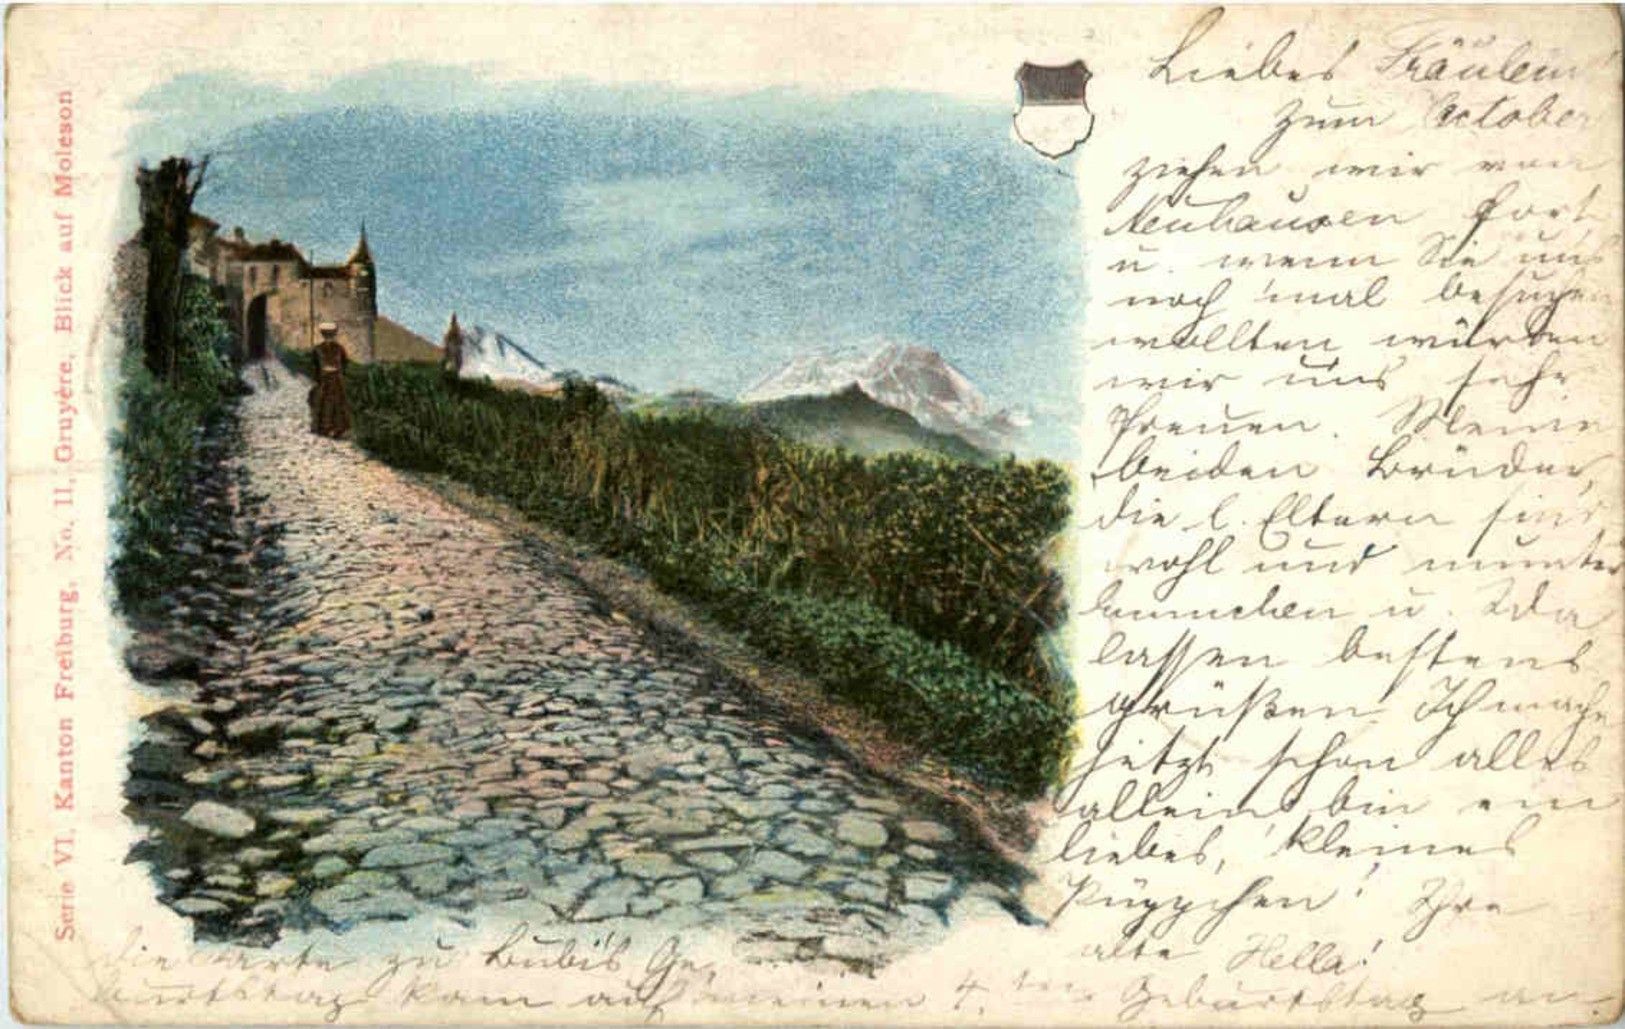 Serie VI, Kanton Freiburg, No. 11, Gruyère, Blick auf Moleson
Liebes Fräulein!
Zum October
ziehen wir von
Neuhausen fort
u. wenn Sie uns
noch 'mal besuchen
wollten würden
wir uns sehr
freuen. Meine
beiden Brüder,
die l. Eltern sind
wohl und munter
u. Ida
lassen bestens
grüßen. Ich mache
jetzt schon alles
allein bin ein
liebes, kleines
Püppchen! Ihre
alte Hella!
die Karte zu Bubi's Ge,
burtstag kam auf meinen 4. ten Geburtstag an.